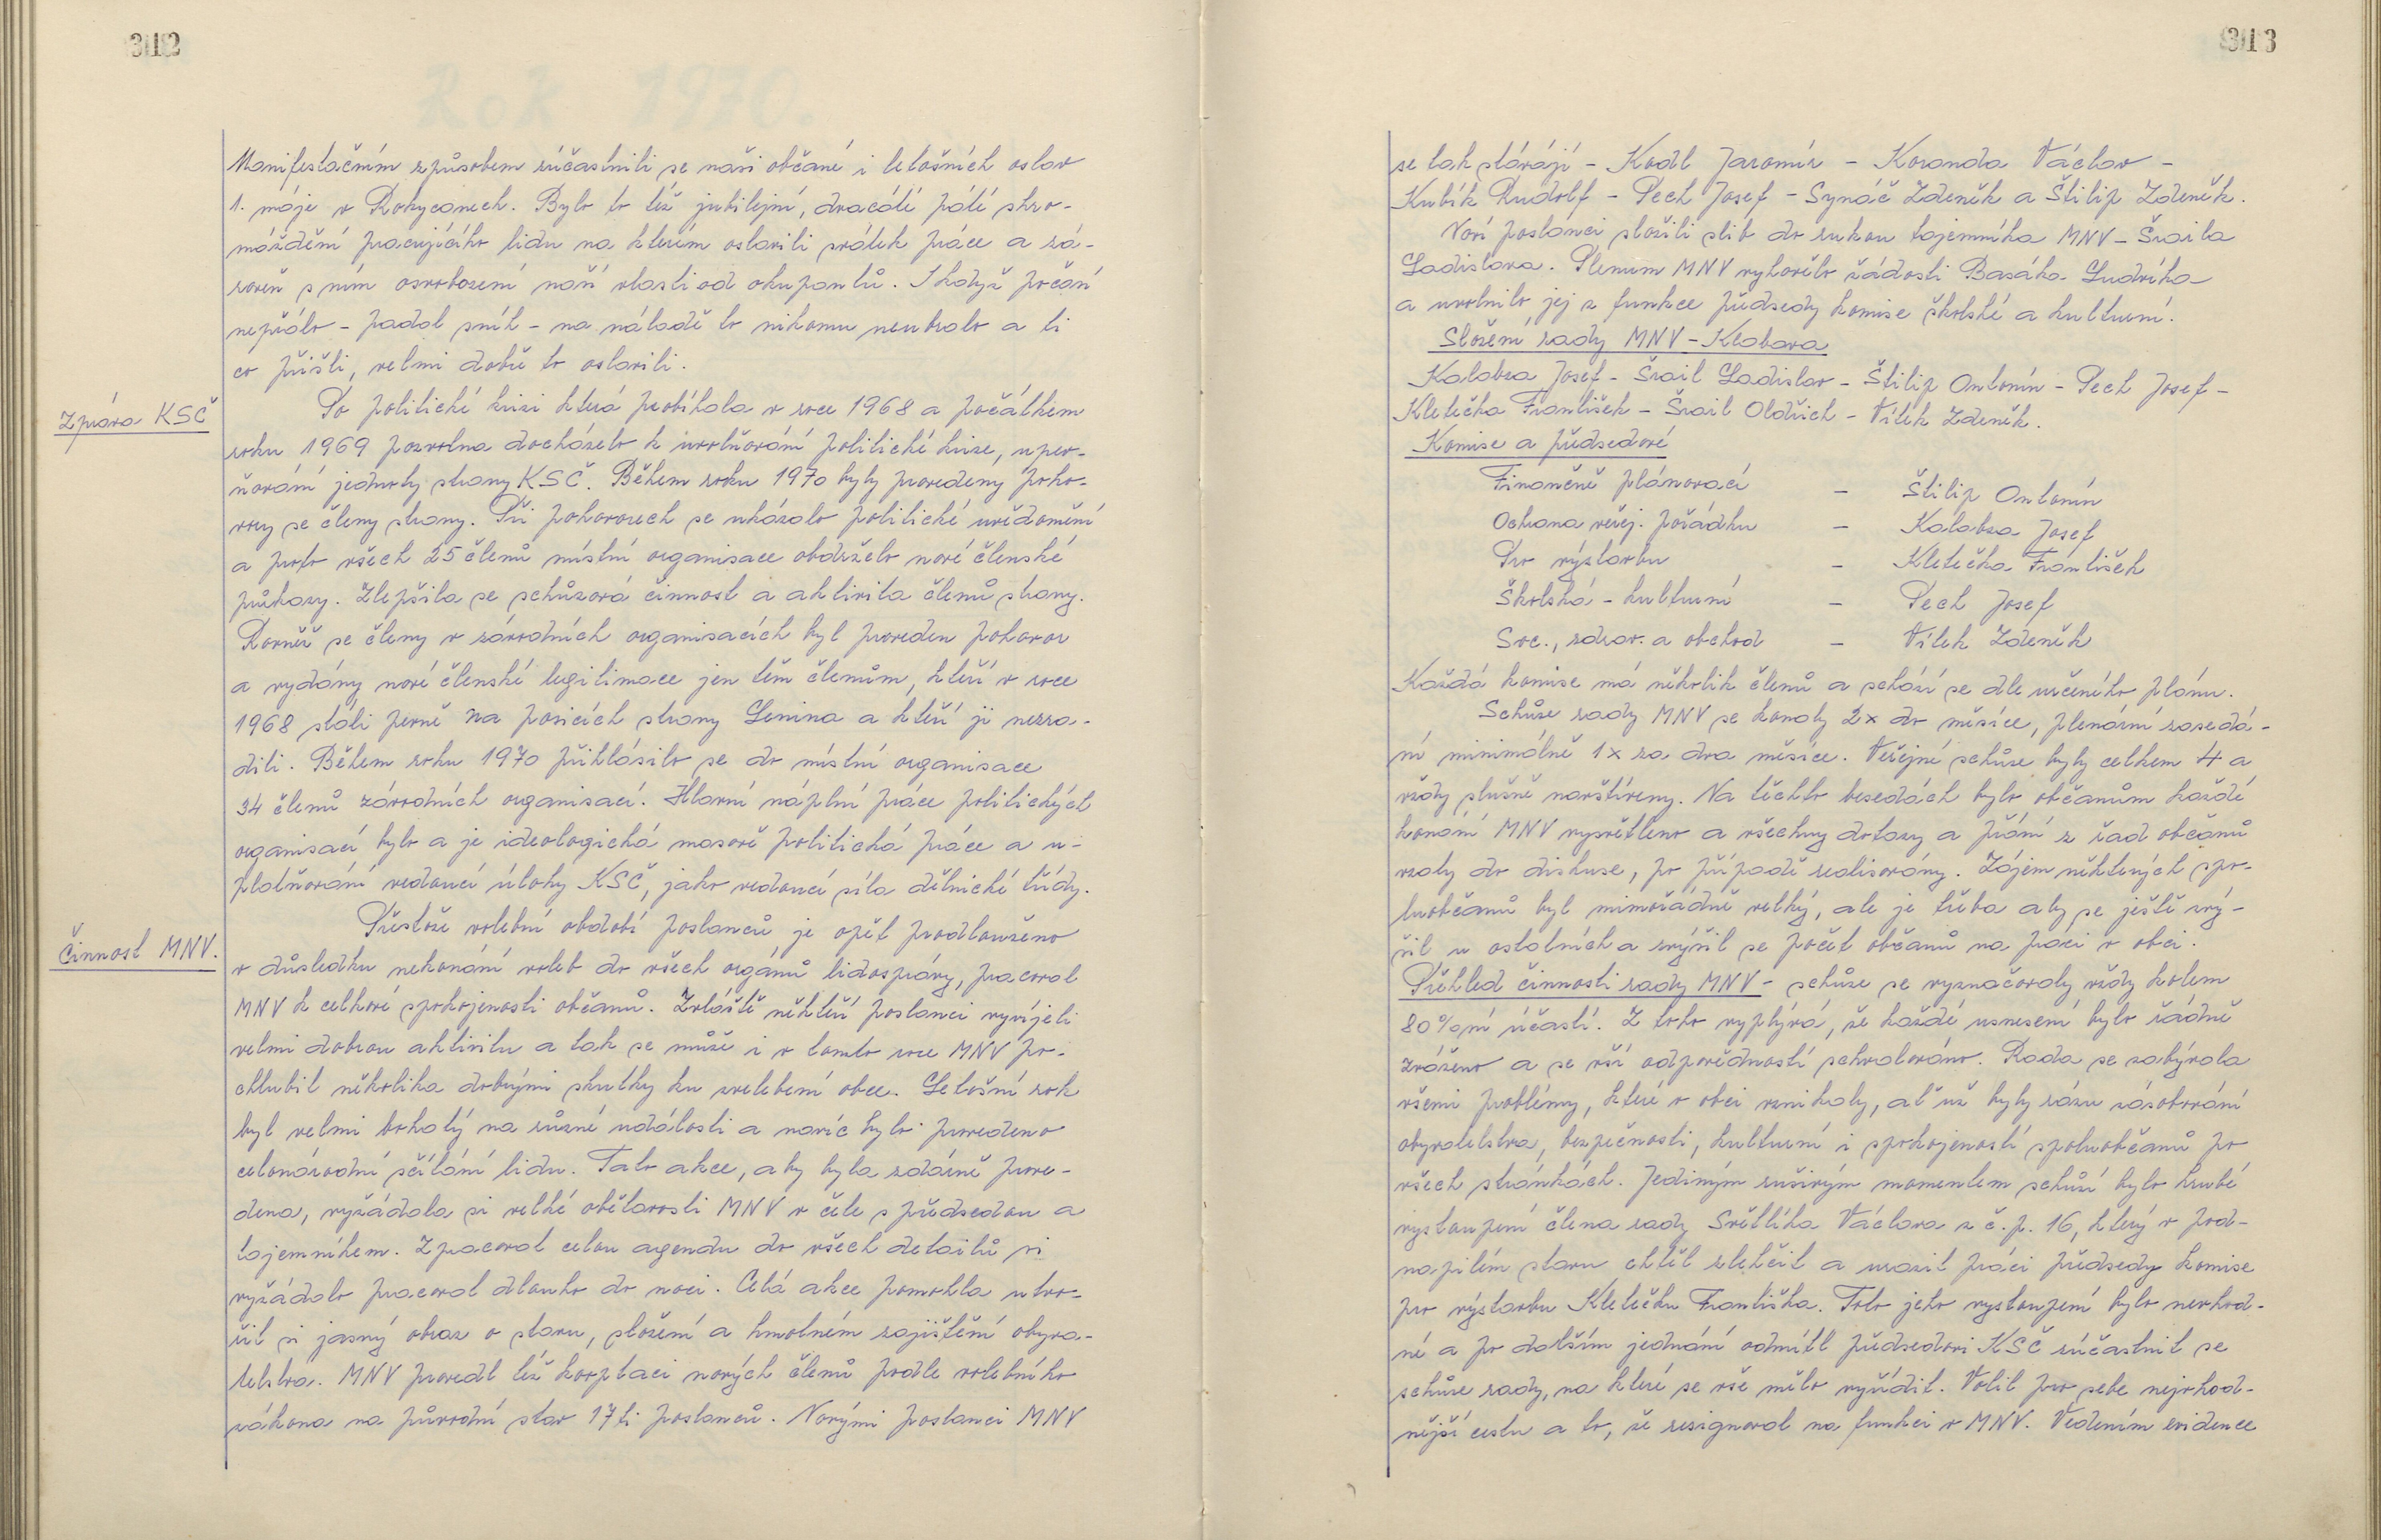 312
Manifestačním způsobem zúčastnili se naši občané i letošních oslav
1. máje v Rokycanech. Bylo to též jubilejní, dvacáté páté shro-
máždění pracujícího lidu na kterém oslavili svátek práce a zá-
roveň s ním osvobození naší vlasti od okupantů. I když počasí
nepřálo - padal sníh - na náladě to nikomu neubralo a ti
co přišli, velmi dobře to oslavili.
Zpráva KSČ
Po politické krizi která probíhala v roce 1968 a počátkem
roku 1969 pozvolna docházelo k uvolňování politické krize, upev-
ňování jednoty strany KSČ. Během roku 1970 byly provedeny poho-
vory se členy strany. Při pohovorech se ukázalo politické uvědomění
a proto všech 25 členů místní organisace obdrželo nové členské
průkazy. Zlepšila se schůzová činnost a aktivita členů strany.
Rovněž se členy v závodních organisacích byl proveden pohovor
a vydány nové členské legitimace jen těm členům, kteří v roce
1968 stáli pevně na posicích strany Lenina a kteří ji nezra-
dili. Během roku 1970 přihlásilo se do místní organisace
34 členů závodních organisací. Hlavní náplní práce politických
organisací bylo a je ideologická masově politická práce a u-
platňování vedoucí úlohy KSČ, jako vedoucí síla dělnické třídy.
Činnost MNV.
Přestože volební období poslanců je opět prodlouženo
v důsledku nekonání voleb do všech orgánů lidosprávy, pracoval
MNV k celkové spokojenosti občanů. Zvláště někteří poslanci vyvíjeli
velmi dobrou aktivitu a tak se může i v tomto roce MNV po-
chlubit několika dobrými skutky ku zvelebení obce. Letošní rok
byl velmi bohatý na různé události a navíc bylo provedeno
celonárodní sčítání lidu. Tato akce, aby byla zdárně prove-
dena, vyžádala si velké obětavosti MNV v čele s předsedou a
tajemníkem. Zpracovat celou agendu do všech detailů si
vyžádalo pracovat dlouho do noci. Celá akce pomohla utvo-
řit si jasný obraz o stavu, složení a hmotném zajištění obyva-
telstva. MNV provedl též kooptaci nových členů podle volebního
zákona na původní stav 17ti poslanců. Novými poslanci MNV
313
se tak stávají - Kodl Jaromír - Koranda Václav -
Kubík Rudolf - Pech Josef - Synáč Zdeněk a Štilip Zdeněk.
Noví poslanci složili slib do rukou tajemníka MNV - Šraila
Ladislava. Plenum MNV vyhovělo žádosti Basáka Ludvíka
a uvolnilo jej z funkce předsedy komise školské a kulturní.
Složení rady MNV - Klabava
Kalabza Josef - Šrail Ladislav - Štilip Antonín - Pech Josef -
Kletečka František - Šrail Oldřich - Vílek Zdeněk.
Komise a předsedové
Finančně plánovací - Štilip Antonín
Ochrana veřej. pořádku - Kalabza Josef
Pro výstavbu - Kletečka František
Školská - kulturní - Pech Josef
Soc., zdrav. a obchod - Vílek Zdeněk
Každá komise má několik členů a schází se dle určeného plánu.
Schůze rady MNV se konaly 2x do měsíce, plenární zasedá-
ní minimálně 1x za dva měsíce. Veřejné schůze byly celkem 4 a
vždy slušně navštíveny. Na těchto besedách bylo občanům každé
konání MNV vysvětleno a všechny dotazy a přání z řad občanů
vzaty do diskuse, po případě realisovány. Zájem některých spo-
luobčanů byl mimořádně velký, ale je třeba aby se ještě zvý-
šil u ostatních a zvýšil se počet občanů na práci v obci.
Přehled činnosti rady MNV - schůze se vyznačovaly vždy kolem
80%ní účastí. Z toho vyplývá, že každé usnesení bylo řádně
zváženo a se vší odpovědností schvalováno. Rada se zabývala
všemi problémy, které v obci vznikaly, ať už byly rázu zásobování
obyvatelstva, bezpečnosti, kulturní i spokojeností spoluobčanů po
všech stránkách. Jediným rušivým momentem schůzí bylo hrubé
vystoupení člena rady Světlíka Václava z č.p. 16, který v pod-
napilém stavu chtěl zlehčit a urazit práci předsedy komise
pro výstavbu Kletečku Františka. Toto jeho vystoupení bylo nevhod-
né a po dalším jednání odmítl předsedovi KSČ zúčastnit se
schůze rady, na které se vše mělo vyřídit. Volil pro sebe nejvhod-
nější cestu a to, že resignoval na funkci v MNV. Vedením evidence